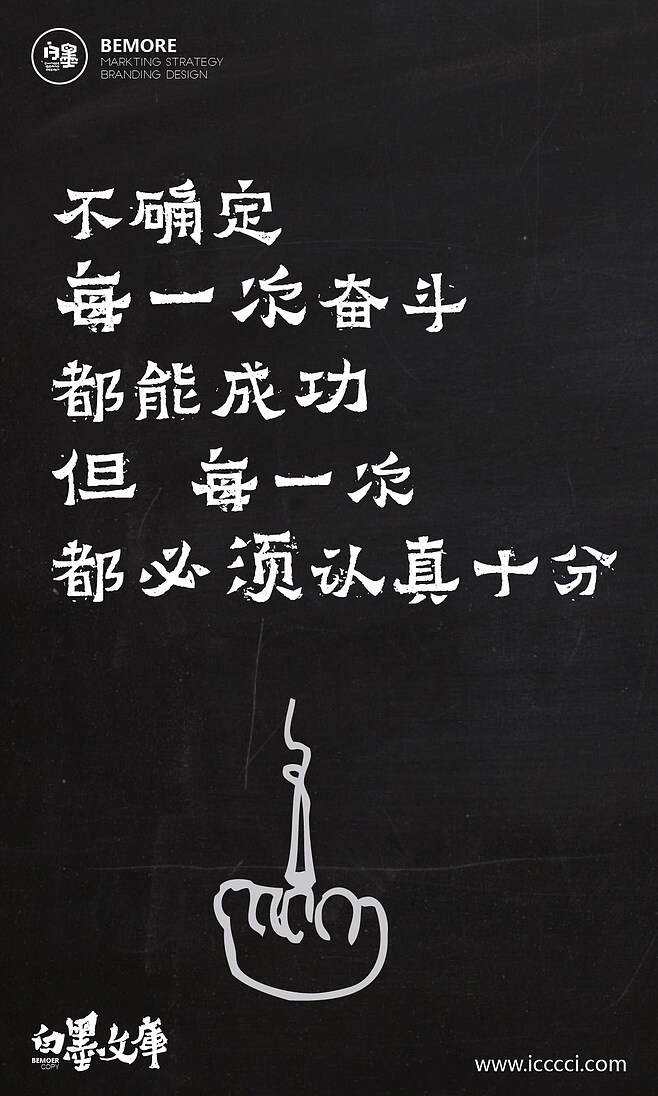 白墨
BEMORE
MARKTING STRATEGY
BRANDING DESIGN
不确定
每一次奋斗
都能成功
但 每一次
都必须认真十分
白墨文庫
BEMOER
COPY
www.icccci.com